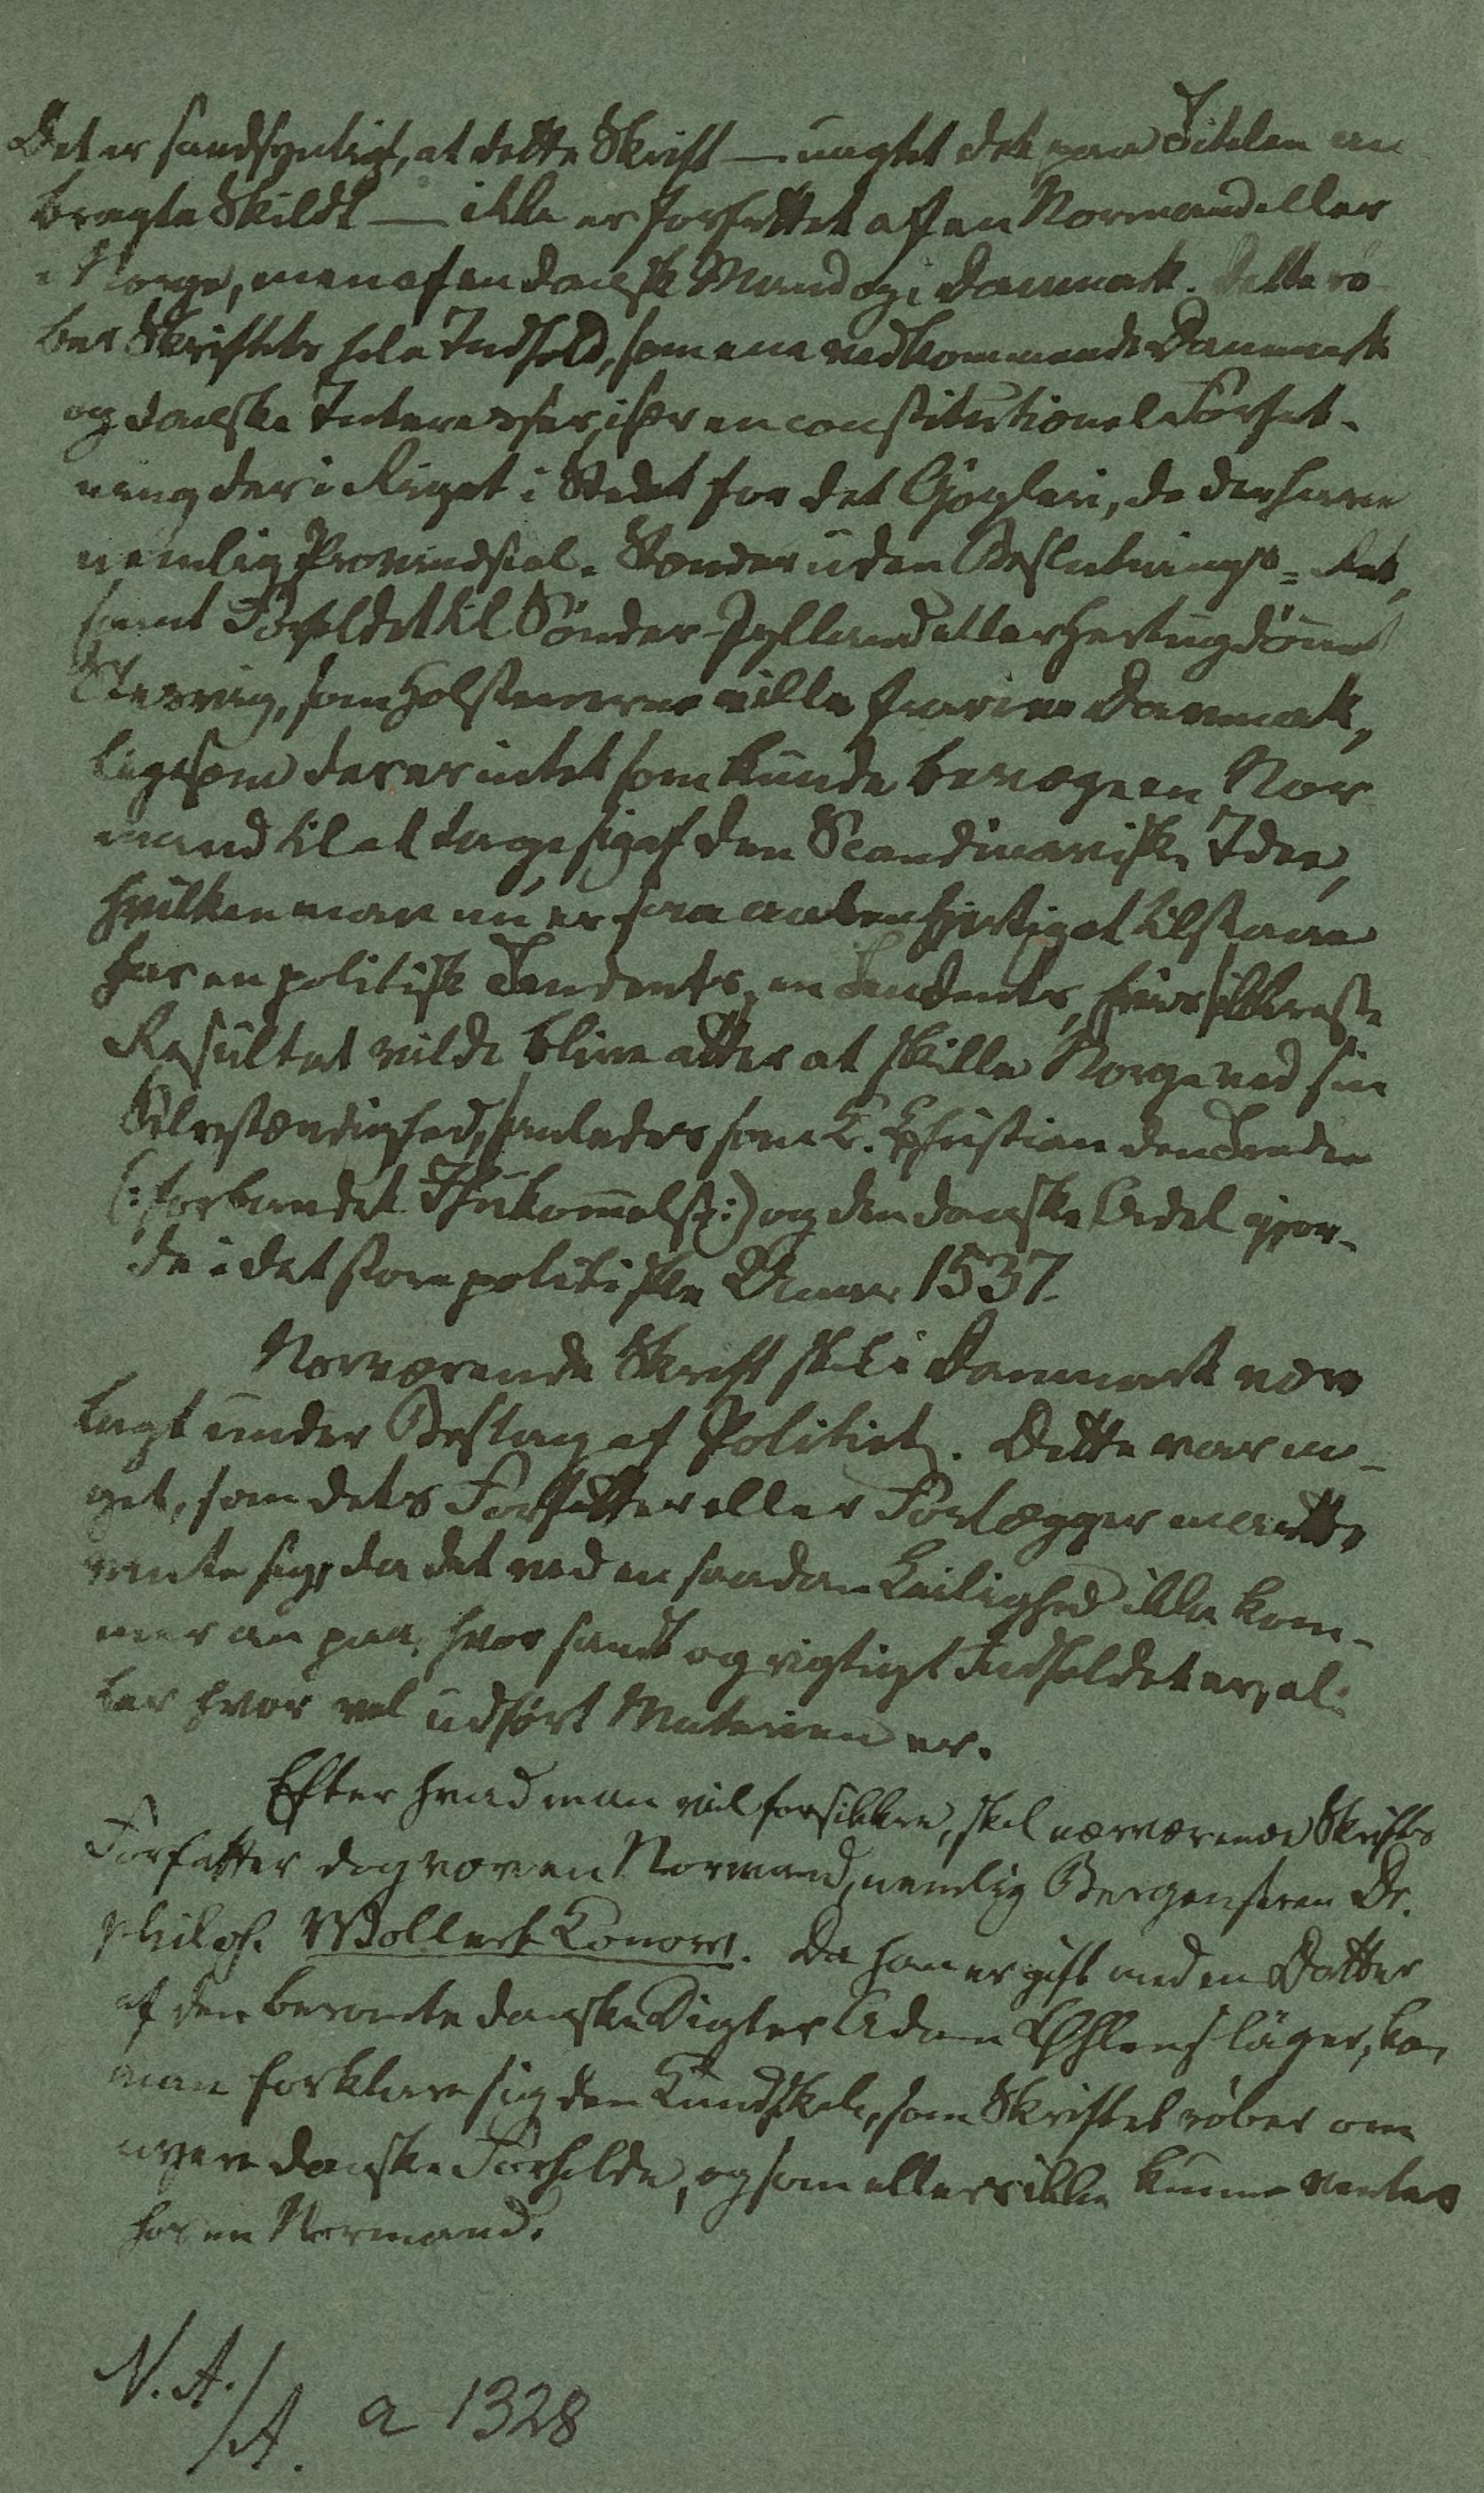 Det er sandsynligt, at dette Skrift — uagtet det paa Titelen an
bragte Skildt — ikke er forfattet af en Normand eller
i Norge, men af en dansk Mand og i Danmark. Dette rö
ber Skriftets hele Indhold, som ene vedkommende Danmark
og danske Interesser, især en constitutionel Forfat-
ning der i Riget i Stedet for det Gjögleri, de der have
nemlig Provindsial-Stænder uden Beslutnings-Ret,
samt Forholdet til Sönder-Jylland eller Hertugdömet
Slesvig, som Holstenerne ville fravriste Danmark,
ligesom der er intet som kunde bevæge en Nor
mand til at tage sig af den Scandinaviske Idee,
hvilken man nu er saa aabenhjertig at tilstaae
har en politisk Tendents, en Tendents, hvis sikkreste
Resultat vilde blive atter at skille Norge ved sin
Selvstændighed, saaledes som K. Christian den Tredie
(:forbandet Ihukommelse:) og den danske Adel gjor-
de i det store politiske 1537.
Nærværende Skrift skal i Danmark være
lagt under Beslag af Politiet. Dette var no-
get, som dets Forfatter eller Forlægger maatte
vente sig, da det ved en saadan Leilighed ikke kom-
mer an paa, hvor sandt og rigtigt Indholdet er, el-
ler hvor vel udfört Materien er.
Efter hvad man vil forsikkre, skal nærværende Skrifts
Forfatter dog være en Normand, nemlig Bergenseren Dr.
philos. Wollert Konow. Da han er gift med en Datter
af den berömte danske Digter Adam Öhlenschläger, kan
man forklare sig den Kundskab, som Skriftet röber om
nyere danske Forholde, og som ellers ikke kunne ventes
hos en Normand.
N. A./A. a 1328